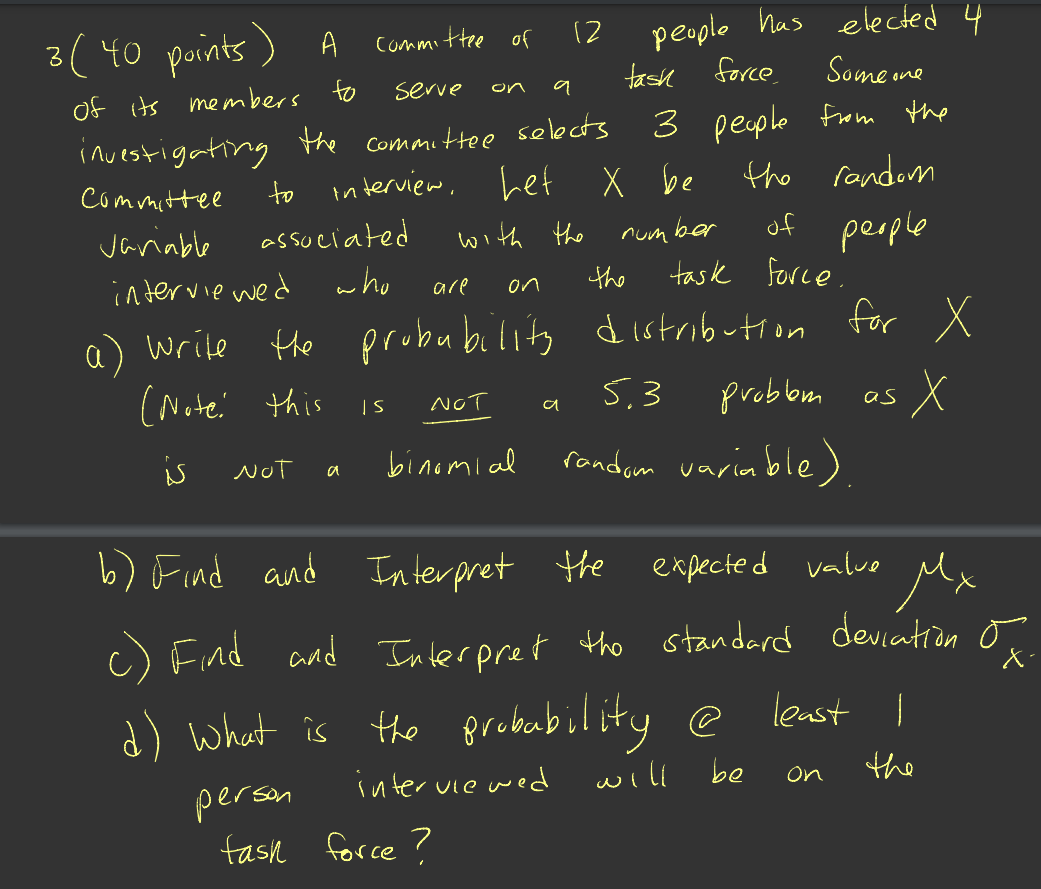 3( 40 points) A committee of 12 people has elected 4
of its members to serve on a task force. Someone
investigating the committee selects 3 people from the
committee to interview. Let X be the random
variable associated with the number of people
interviewed who are on the task force.
a) Write the probability distribution for X
(Note: this is NOT a 5.3 problem as X
is NOT a binomial random variable).
b) Find and Interpret the expected value μx
c) Find and Interpret the standard deviation σx.
d) What is the probability @ least 1
person interviewed will be on the
task force?